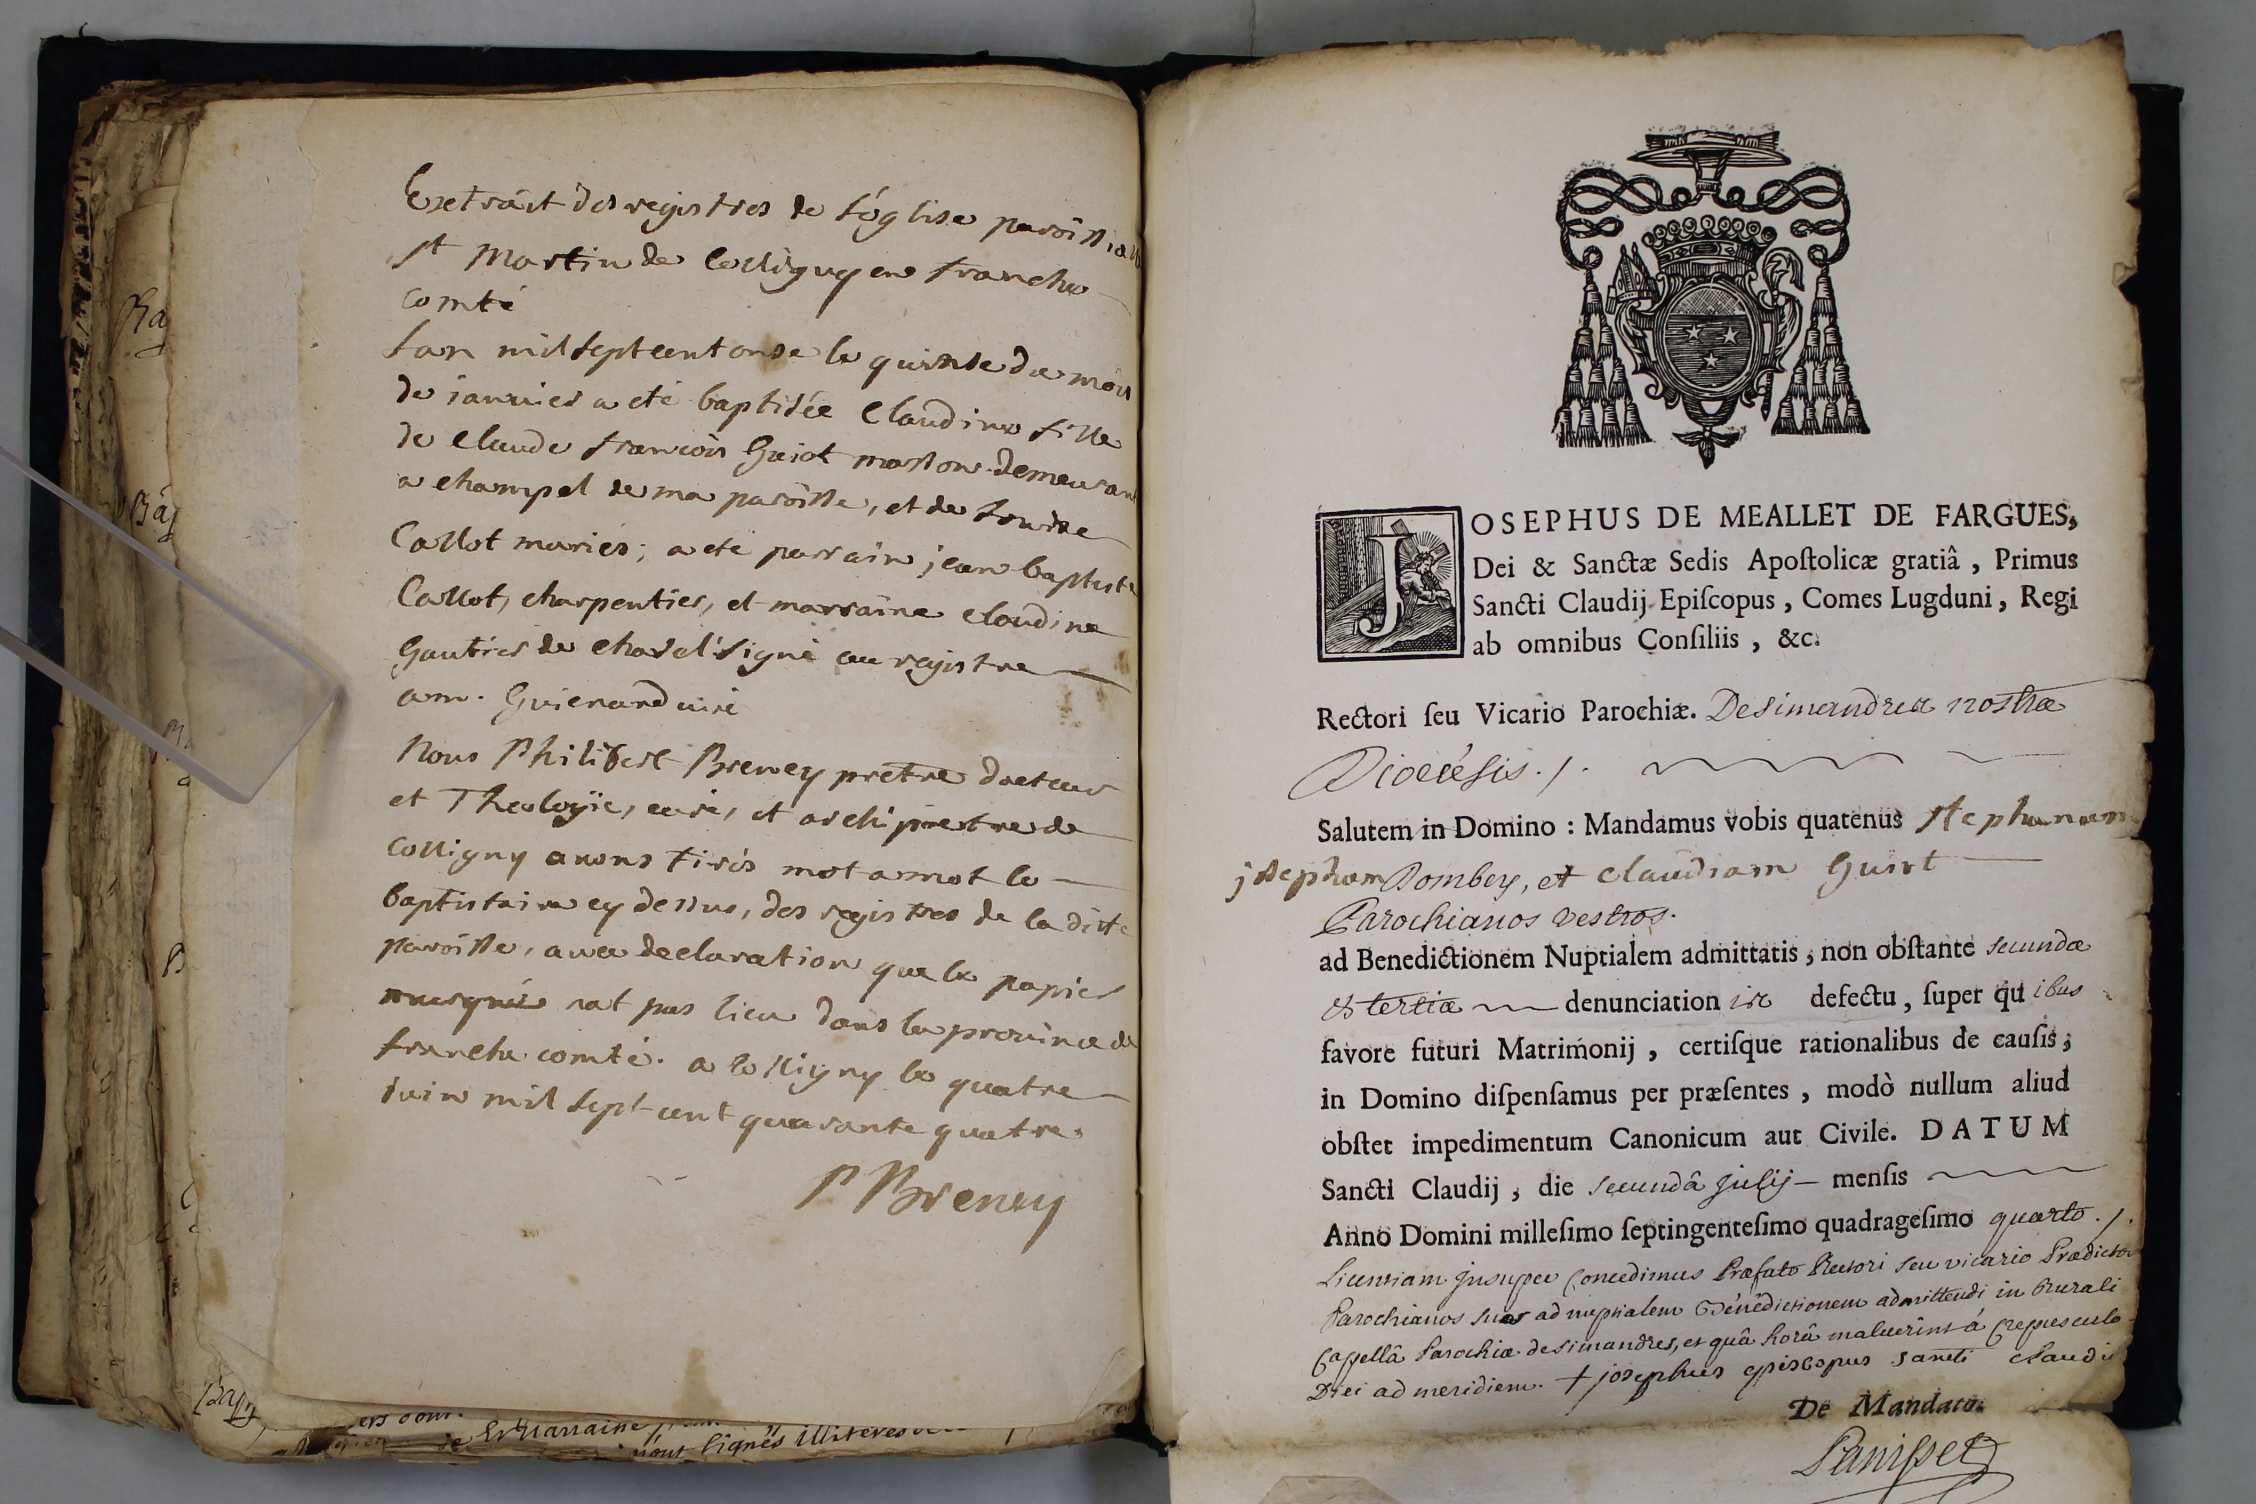 Extrait des registres de l'église paroissiale
st Martin de Colligny en franche
comté
L'an mil sept cent onse le quinse du mois
de januier a eté baptisée Claudine fille
de Claude francois Guiot masson demeurant
a champel de ma paroisse, et de Louise
Callot mariés; a eté parrain jean baptiste
Callot, charpentier, et marraine Claudine
Gautier de Chasel signé au registre
am. Guienard curé
Nous Philibert Breney prêtre docteur
et Theologie, curé, et archiprestre de
Colligny auons tirés mot a mot le
baptistaire cy dessus, des registres de la dite
paroisse, auec declaration que le papier
marqué nat pas lieu dans la prouince de
franche comté. a Colligny le quatre
iuin mil sept cent quarante quatre.
P Breney
JOSEPHUS DE MEALLET DE FARGUES,
Dei & Sanctæ Sedis Apoſtolicæ gratiâ, Primus
Sancti Claudij Epiſcopus, Comes Lugduni, Regi
ab omnibus Conſiliis, &c.
Rectori ſeu Vicario Parochiæ. Desimandrea nostræ
Dioecésis ./.
Salutem in Domino : Mandamus vobis quatenus stephanum
josephum Bombey, et claudiam Guiot
Parochianos vestros.
ad Benedictionem Nuptialem admittatis, non obſtante secundæ
et tertiæ denunciation is defectu, ſuper qu ibus
favore futuri Matrimonij, certiſque rationalibus de cauſis;
in Domino diſpenſamus per præſentes, modò nullum aliud
obſtet impedimentum Canonicum aut Civile. DATUM
Sancti Claudij, die secundâ julij menſis
Anno Domini milleſimo ſeptingenteſimo quadrageſimo quarto ./.
Licentiam insuper concedimus Præfato Rectori seu vicario Prædictos
Parochianos suos ad nuptialem Bénédictionem admittendi in Rurali
Cappellâ Parochiæ desimandres, et quâ horâ maluerint á crepusculo
Diei ad meridiem. + josephus episcopus sancti claudii
De Mandato.
Panisset